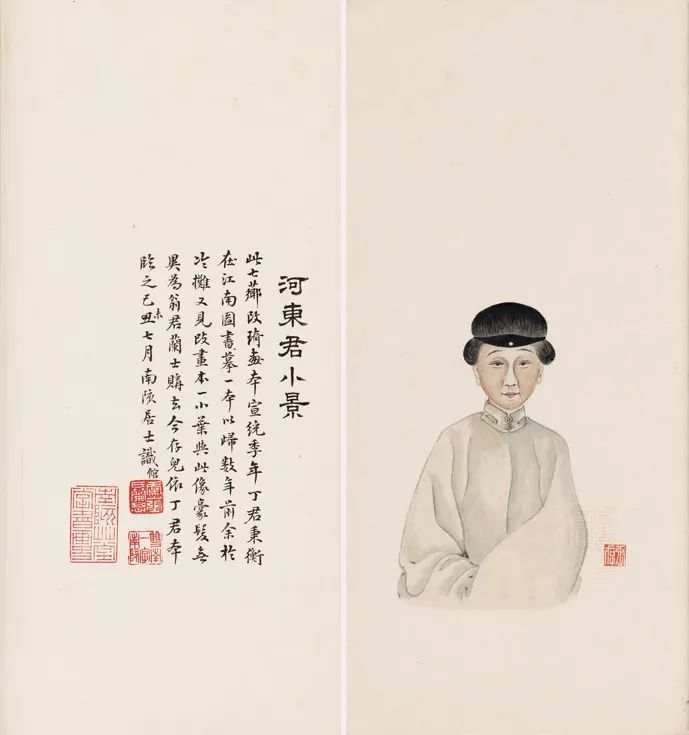 河東君小景
此七薌改琦畫本宣統季年丁君秉衡
在江南圖書摹一本以歸數年前余於
冷攤又見改畫本一小葉與此像豪髮無
異為翁君蘭士購去今存兒依丁君本
臨之己丑未七月南陔居士識
館